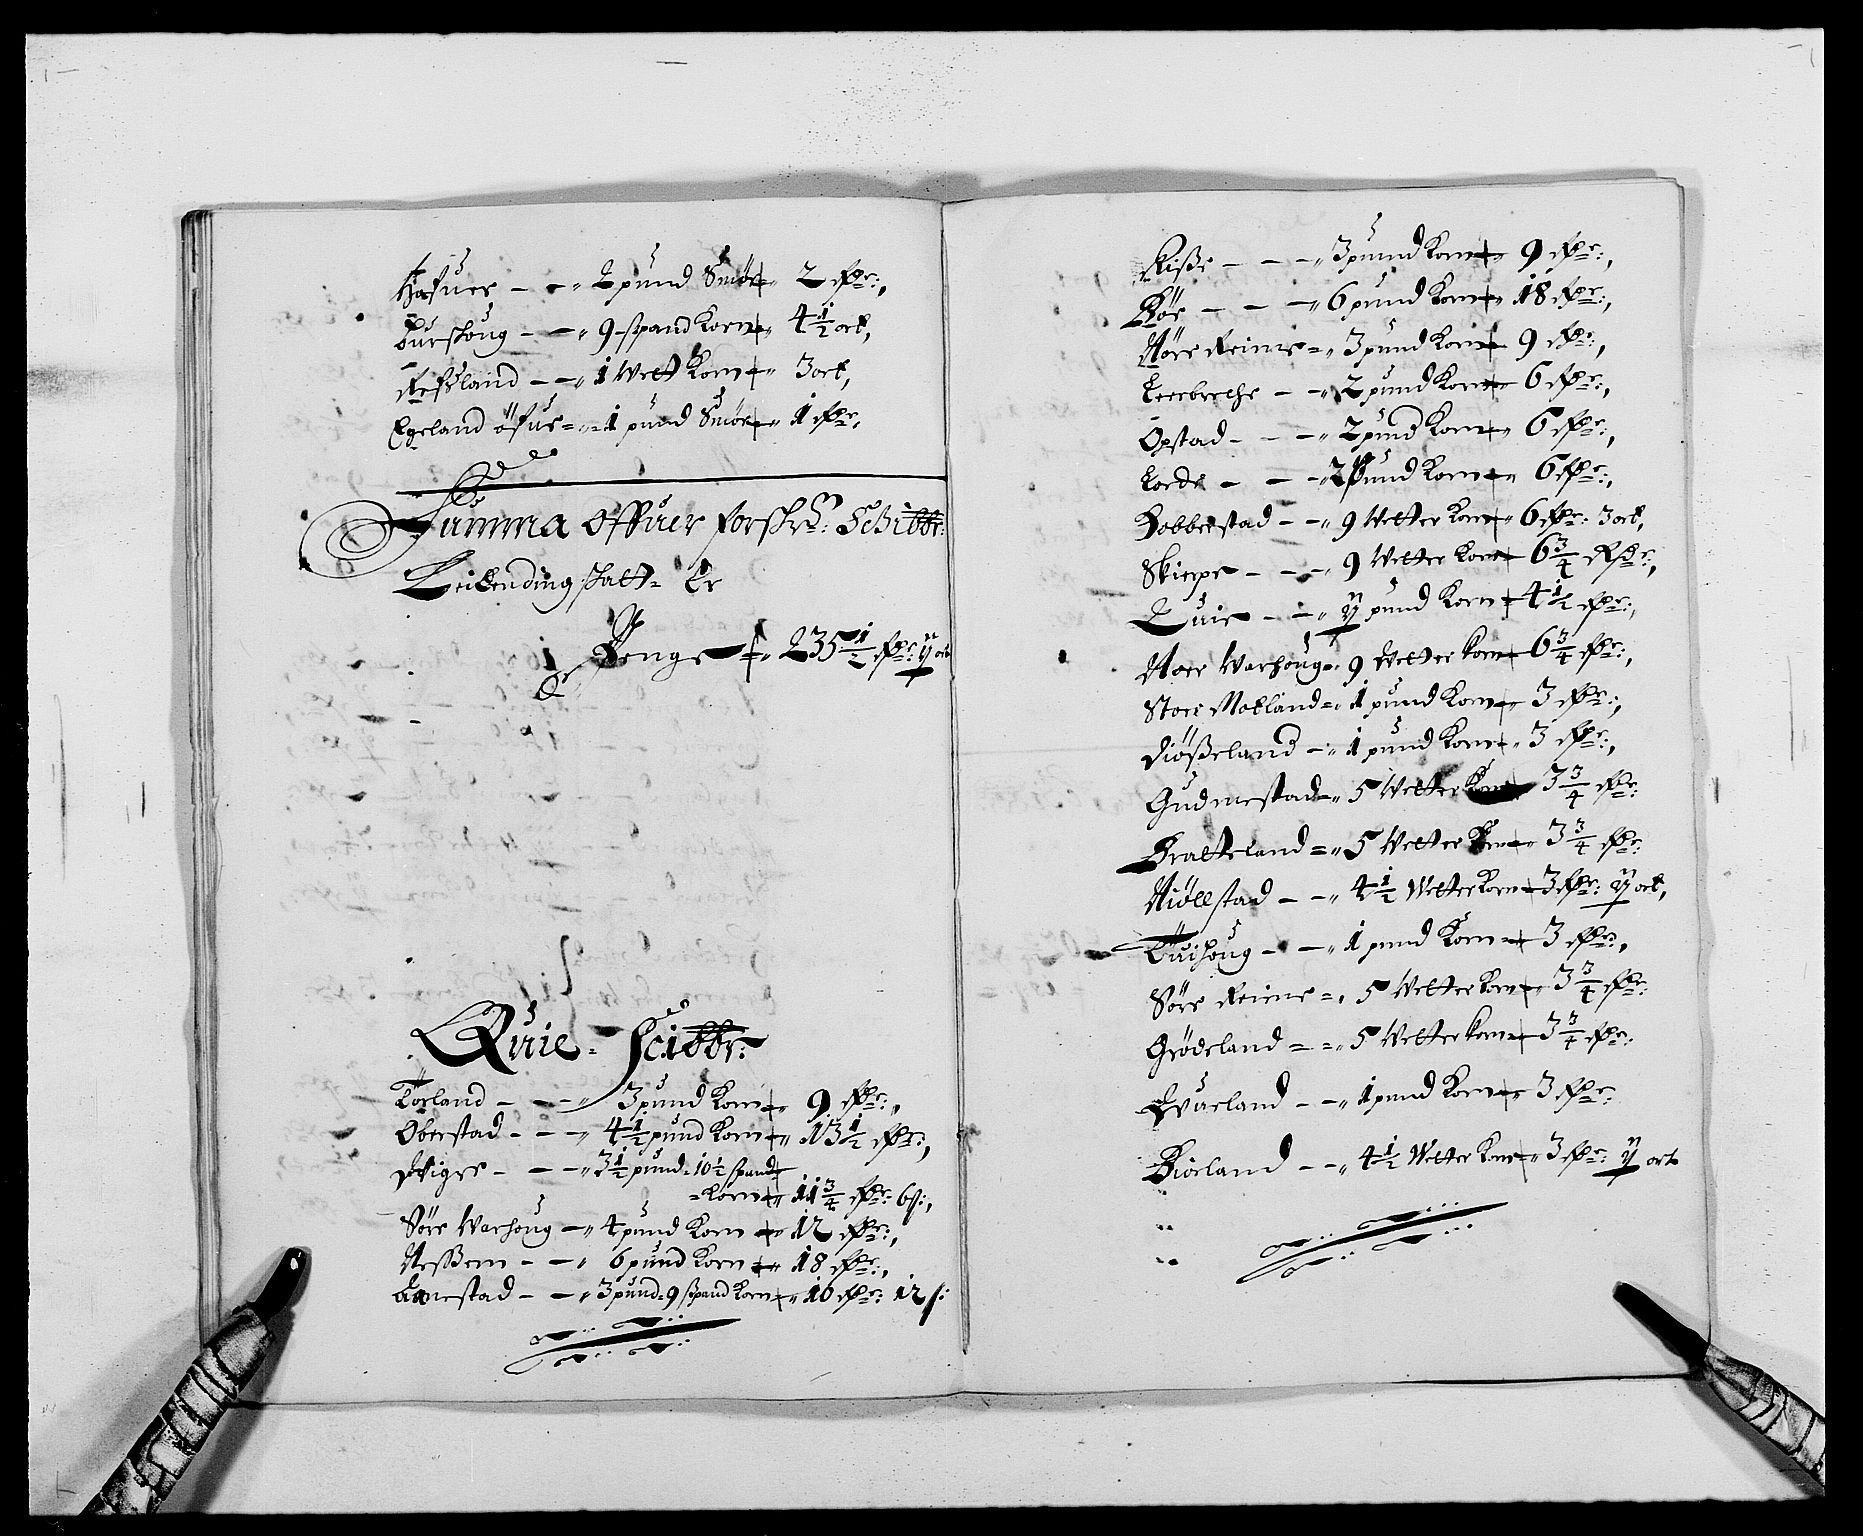 Hafuer - - „ 2 pund Smør „ 2 rdr:,
Burhoug - - „ 9 spand Korn „ 4½ ort,
Refsland - - „ 1 Wett Korn „ 3 ort,
Egeland öfue = „ 1 pund Smør „ 1 rdr,
Summa Offuer forskr: Schibbr:
Leilending skatt = Er
Penge „ 235½ rdr: ij ort
Quie = Scibbr:
Torland - - - „ 3 pund Korn „ 9 rdr:,
Oberstad - - - „ 4½ pund Korn „ 13½ rdr:,
- - - „ 3½ pund = 10½ spand
= Korn „ 11¾ rdr: 6 s:,
Søre Warhoug - „ 4 pund Korn „ 12 rdr:,
Nessem - - „ 6 pund Korn „ 18 rdr:,
Aanestad - - „ 3 pund = 9 spand Korn „ 10 rdr: 12 s:
Risse - - - „ 3 pund Korn „ 9 rdr:,
Bøe - - - „ 6 pund Korn „ 18 rdr:,
Nøre Reime = „ 3 pund Korn „ 9 rdr:,
Leerbrecke - - „ 2 pund Korn „ 6 rdr:,
Opstad - - - „ 2 pund Korn „ 6 rdr:,
Lorde - - - „ 2 pund Korn „ 6 rdr:,
Hobberstad - - „ 9 Wetter Korn „ 6 rdr: 3 ort,
Skierpe - - - „ 9 Wetter Korn 6¾ rdr:,
Quie - - „ ij pund Korn 4½ rdr:,
Noer Warhoug = „ 9 Wetter Korn 6¾ rdr:,
Store Motland = „ 1 pund Korn „ 3 rdr:,
Diösseland - „ 1 pund Korn „ 3 rdr:,
Gudmestad = „ 5 Wetter Korn 3¾ rdr:
Bratteland = „ 5 Wetter Korn „ 3¾ rdr:
Niöllstad - - „ 4½ Wetter Korn 3 rdr: ij ort,
Tuihoug - - „ 1 pund Korn 3 rdr:,
Søre Reime = „ 5 Wetter Korn „ 3¾ rdr:
Grødeland = = „ 5 Wetter Korn 3¾ rdr:
Duueland - - „ 1 pund Korn „ 3 rdr:
Biorland - - „ 4½ Wetter Korn „ 3 rdr: ij ort